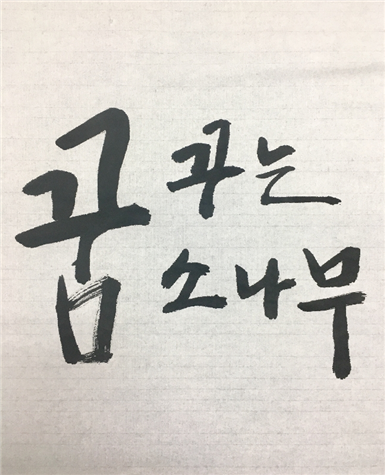 꿈 꾸는
소나무